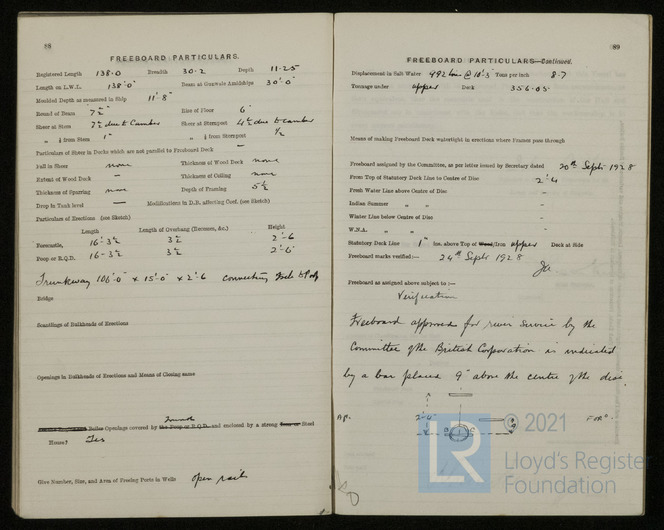 88
FREEBOARD PARTICULARS.
Registered Length 138·0 Breadth 30·2 Depth 11·25
Length on L.W.L. 138'·0" Beam at Greatest Amidships 30'·0"
Moulded Depth as measured in Ship 11'-8"
Round of Beam 7½" Rise of Floor 6"
Sheer at Stem 7½ due to Camber Sheer at Sternpost 4½ due to camber
" ⅛ from Stem 1" " ⅛ from Sternpost ½
Particulars of Sheer in Decks which are not parallel to Freeboard Deck -
Fall in Sheer none Thickness of Wood Deck none
Extent of Wood Deck - Thickness of Ceiling none
Thickness of Sparring none Depth of Framing 5½
Drop in Tank level - Modifications in D.B. affecting Coef. (see Sketch)
Particulars of Erections (see Sketch)
Length Length of Overhang (Recesses, &c.) Height
Forecastle, 16'-3½ 3½ 2'-6
Poop or R.Q.D. 16-3½ 3½ 2'-6"
Trunkway 106'·0" x 15'·0 x 2'·6 connecting
Bridge
Scantlings of Bulkheads of Erections
Openings in Bulkheads of Erections and Means of Closing same
Trunk
Boiler Openings covered by the Poop or R.Q.D. and enclosed by a strong Iron or Steel
House? Yes
Give Number, Size, and Area of Freeing Ports in Wells open rails
89
FREEBOARD PARTICULARS—Continued.
Displacement in Salt Water 992 tons @ 10'·3" Tons per inch 8·7
Tonnage under upper Deck 356·05
Means of making Freeboard Deck watertight in erections where Frames pass through
Freeboard assigned by the Committee, as per letter issued by Secretary dated 20th Septr 1928
From Top of Statutory Deck Line to Centre of Disc 2'·4
Fresh Water Line above Centre of Disc -
Indian Summer " " -
Winter Line below Centre of Disc -
W.N.A. " " -
Statutory Deck Line 1" ins. above Top of Wood/Iron upper Deck at Side
Freeboard marks verified:— 24th Septr 1928
Freeboard as assigned above subject to:—
Verification
Freeboard approved for river service by the
Committee of the British Corporation is indicated
by a bar placed 9" above the centre of the disc.
AP. 2'-4" B C 9" FORD.
© 2021
LR
Lloyd's Register
Foundation